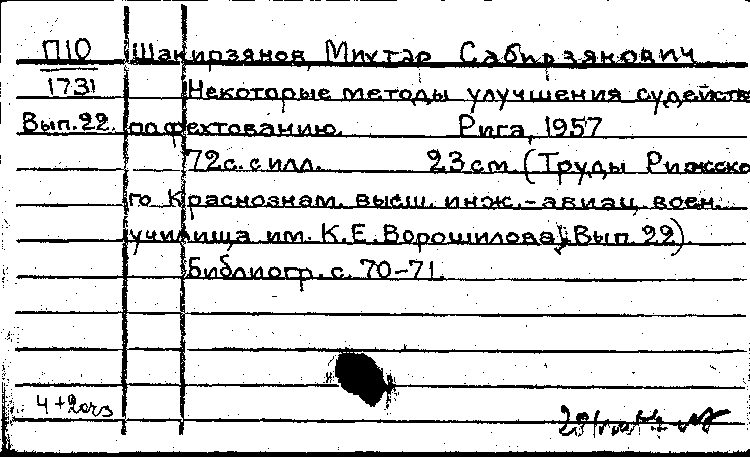 П10 Шакирзянов, Михтар Сабирзянович
1731 Некоторые методы улучшения судейств
Вып.22. по фехтованию. Рига, 1957
72с. с илл. 23 см. (Труды Рижско
го Краснознам. высш. инж.-авиац. воен.
училища им. К.Е.Ворошилова, Вып. 22).
Библиогр. с. 70-71.
4+2отз